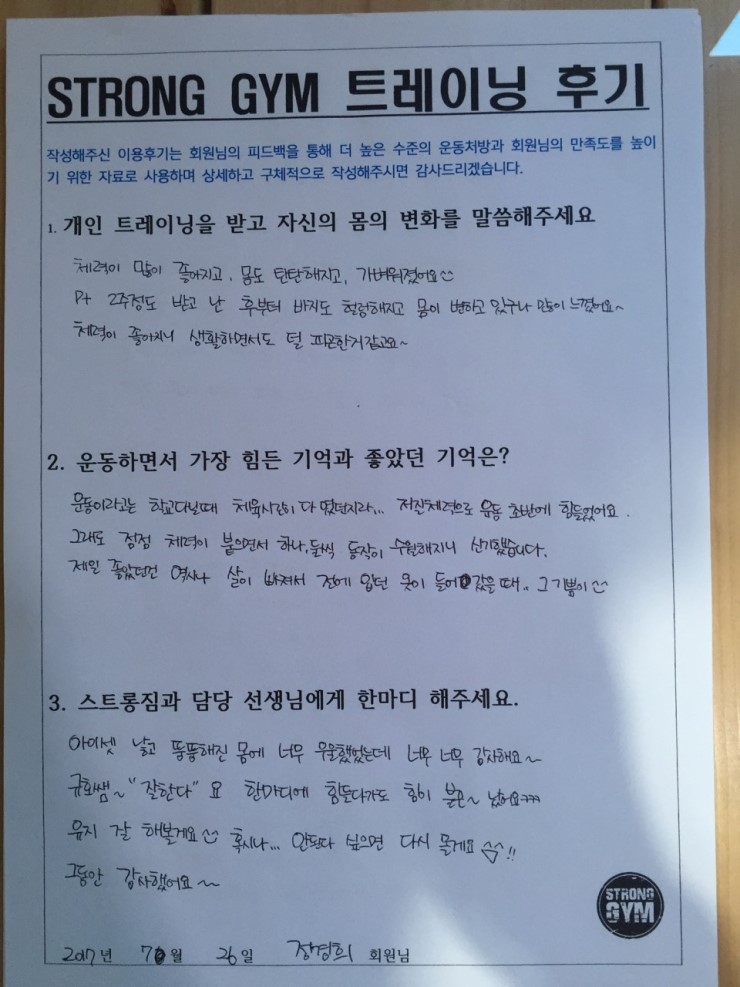 STRONG GYM 트레이닝 후기
작성해주신 이용후기는 회원님의 피드백을 통해 더 높은 수준의 운동처방과 회원님의 만족도를 높이
기 위한 자료로 사용하며 상세하고 구체적으로 작성해주시면 감사드리겠습니다.
1. 개인 트레이닝을 받고 자신의 몸의 변화를 말씀해주세요
체력이 많이 좋아지고, 몸도 탄탄해지고, 가벼워졌어요
Pt 2주정도 받고 난 후부터 바지도 헐렁해지고 몸이 변하고 있구나 많이 느꼈어요~
체력이 좋아지니 생활하면서도 덜 피곤한거같고요~
2. 운동하면서 가장 힘든 기억과 좋았던 기억은?
운동이라고는 학교다닐때 체육시간이 다 였던지라... 저질체력으로 운동 초반에 힘들었어요.
그래도 점점 체력이 붙으면서 하나, 둘씩 동작이 수월해지니 신기했습니다.
제일 좋았던건 역시나 살이 빠져서 전에 입던 옷이 들어갔을때.. 그 기쁨이
3. 스트롱짐과 담당 선생님에게 한마디 해주세요.
아이셋 낳고 뚱뚱해진 몸에 너무 우울했었는데 너무 너무 감사해요~
규화쌤~ "잘한다" 요 한마디에 힘들다가도 힘이 불끈~ 났어요ㅋㅋㅋ
유지 잘 해볼게요 혹시나... 안된다 싶으면 다시 올게요 ^^!!
그동안 감사했어요~
STRONG
GYM
2017년 7월 26일 장경희 회원님